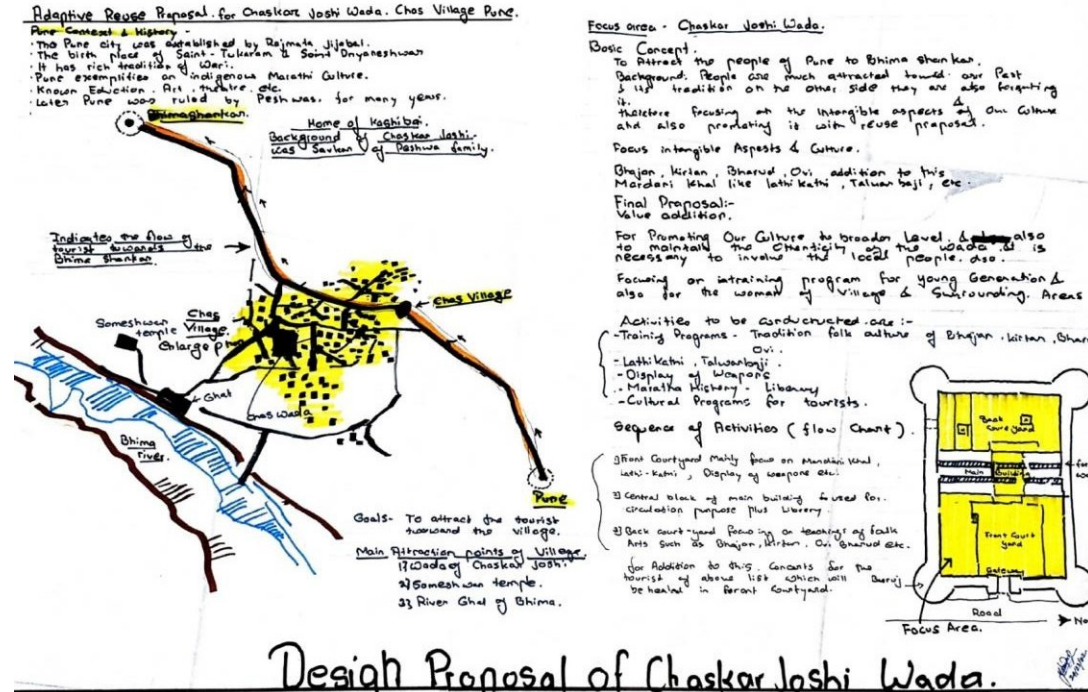 Adaptive Reuse Proposal. for Chaskar Joshi Wada. Chas Village Pune.
Pune Context & History -
· The Pune city was established by Rajmata Jijabai.
· The birth place of Saint-Tukaram & Saint Dnyaneshwar
· It has rich tradition of Wari.
· Pune exemplifies an indigenous Marathi Culture.
· Known Eduction, Art, theatre, etc.
· Later Pune was ruled by Peshwas. for many years.
Bhimashankar.
Home of Kashibai.
Background of Chaskar Joshi-
was Savkar of Peshwa family.
Indicates the flow of
tourist towards the
Bhima Shankar.
Chas Village
Someshwar
temple
Chas
Village.
Enlarge plan
Ghat
Chas Wada
Bhima
River.
Pune
Goals- To attract the tourist
toowaord the village.
Main Attraction points of Village
1) Wada of Chaskar Joshi.
2) Someshwar temple.
3) River Ghat of Bhima.
Focus area - Chaskar Joshi Wada.
Basic Concept.
To Attract the people of Pune to Bhima shankar.
Background: People are much attracted toward our Past
& its tradition on the other side they are also forgeting
it. &
therefore focusing on the Intangible aspects of Our Culture
and also promoting it with reuse proposal.
Focus intangible Aspests & Culture.
Bhajan, Kirtan, Bharud, Ovi addition to this
Mardani Khal like lathi kathi, Talwar baji, etc.
Final Praposal:-
Value addition.
For Promoting Our Culture to broader level. & also
to maintain the Othenticity of the wada. it is
necessary to involve the local people. also.
Focusing on intraining program for young Generation &
also for the woman of Village & Surrounding Areas
Activities to be conductected are :-
-Training Programs - Tradition folk culture of Bhajan, kirtan, Bharud
Ovi.
-Lathi Kathi, Talwarbaji.
-Display of Weapons
-Maratha History - Liberary
-Cultural Programs for tourists.
Sequence of Activities (flow Chart).
1) Front Courtyard Mainly focus on Mardani Khal,
Lathi-Kathi, Display of weapons etc.
2) Central block of main building is used for.
circulation purpose plus Library
3) Back court-yard focusing on teachings of folk
Arts Such as Bhajan, Kirtan, Ovi Bharud etc.
for Addition to this. Concerts for the
tourist of above list which will
be healed in foront Courtyard.
Back
Courtyard
Main Building
Front Court
yard
Gateway
Buruj
Road
Focus Area.
Design Proposal of Chaskar Joshi Wada.